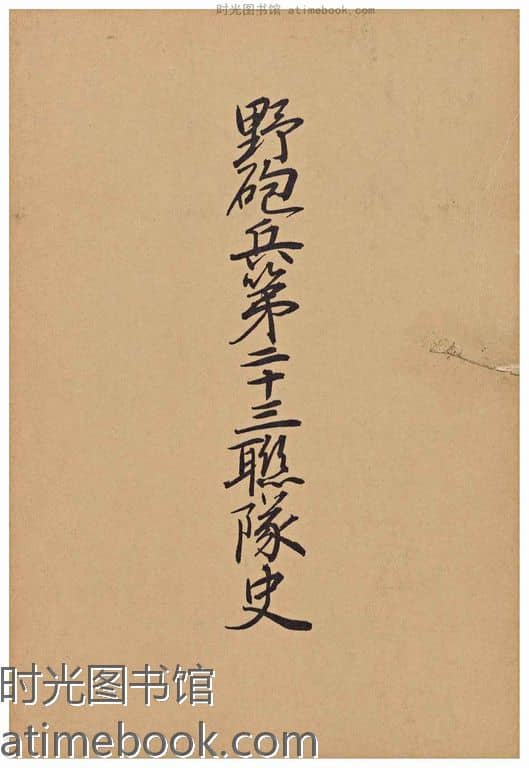 时光图书馆 atimebook.com
野砲兵第二十三聯隊史
时光图书馆
atimebook.com